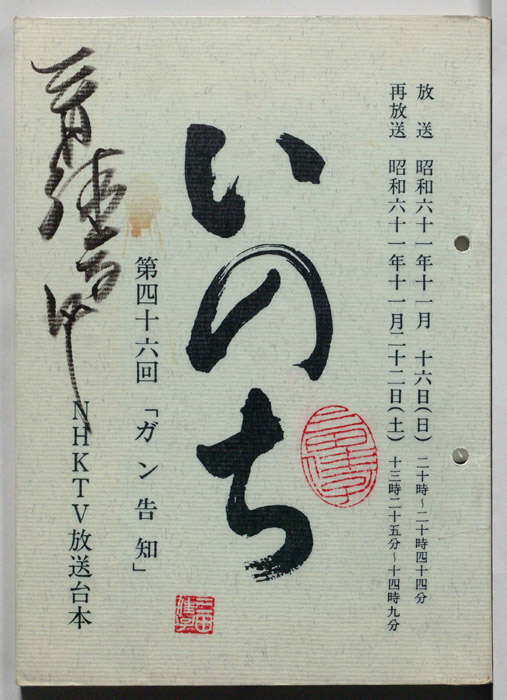 放送 昭和六十一年十一月 十六日(日) 二十時~二十時四十四分
再放送 昭和六十一年十一月二十二日(土) 十三時二十五分~十四時九分
いのち
第四十六回 「ガン告知」
NHKTV放送台本